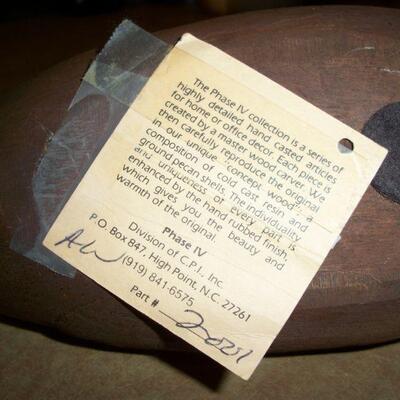 The Phase IV collection is a series of
highly detailed hand casted articles
for home or office decor. Each piece is
created by a master wood carver. We
then carefully reproduce the original
in our unique concept wood; a
composition of cold cast resin and
ground pecan shells. The individuality
and uniqueness of every part is
enhanced by the hand rubbed finish,
which gives you the beauty and
warmth of the original.
Phase IV
Division of C.P.I., Inc.
P.O. Box 847, High Point, N.C. 27261
(919) 841-6575
Part #